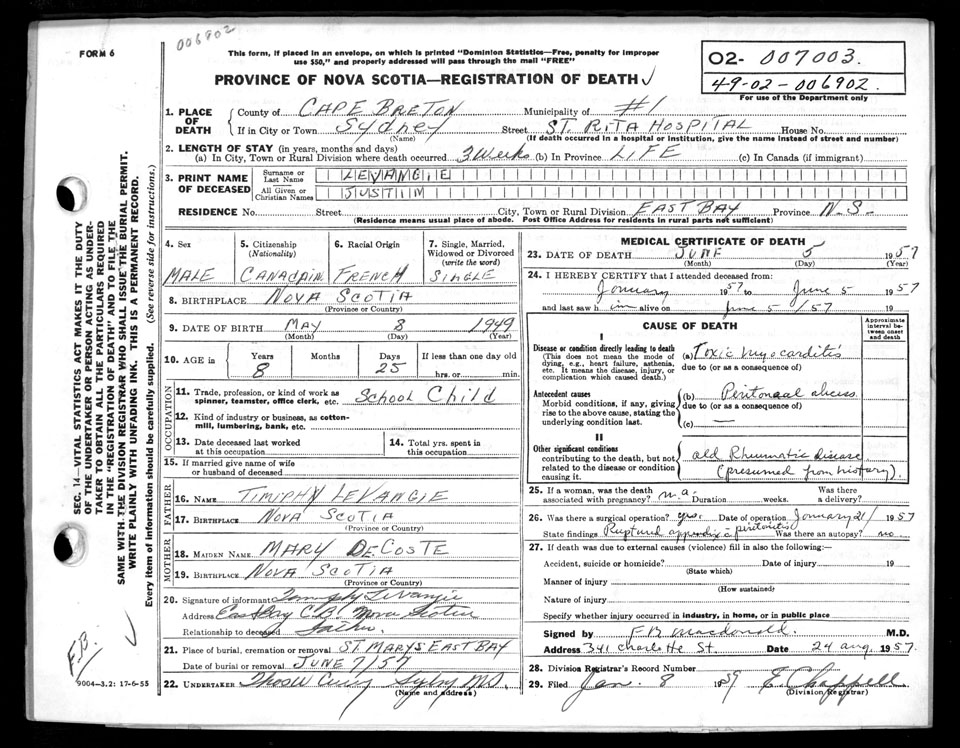 FORM 6
006902
This form, if placed in an envelope, on which is printed "Dominion Statistics—Free, penalty for improper
use $50," and properly addressed will pass through the mail "FREE"
PROVINCE OF NOVA SCOTIA—REGISTRATION OF DEATH
02- 007003.
49-02-006902.
For use of the Department only
1. PLACE OF DEATH
County of CAPE BRETON Municipality of #1
If in City or Town Sydney Street ST. RITA HOSPITAL House No.
(Name) (If death occurred in a hospital or institution, give the name instead of street and number)
2. LENGTH OF STAY (in years, months and days)
(a) In City, Town or Rural Division where death occurred 3 Weeks (b) In Province LIFE (c) In Canada (if immigrant)
3. PRINT NAME OF DECEASED
Surname or Last Name LEVANGIE
All Given or Christian Names JUSTIM
RESIDENCE No. Street City, Town or Rural Division EAST BAY Province N-S-
(Residence means usual place of abode. Post Office Address for residents in rural parts not sufficient)
4. Sex
MALE
5. Citizenship
(Nationality)
CANADAIN
6. Racial Origin
FRENCH
7. Single, Married, Widowed or Divorced
(write the word)
SINGLE
8. BIRTHPLACE NOVA SCOTIA
(Province or Country)
9. DATE OF BIRTH MAY 8 1949
(Month) (Day) (Year)
10. AGE in
Years 8
Months
Days 25
If less than one day old
hrs. or min.
OCCUPATION
11. Trade, profession, or kind of work as spinner, teamster, office clerk, etc. School Child
12. Kind of industry or business, as cotton-mill, lumbering, bank, etc.
13. Date deceased last worked at this occupation
14. Total yrs. spent in this occupation
15. If married give name of wife or husband of deceased
FATHER
16. NAME TIMIPHY LEVANGIE
17. BIRTHPLACE NOVA SCOTIA
(Province or Country)
MOTHER
18. MAIDEN NAME MARY DECOSTE
19. BIRTHPLACE NOVA SCOTIA
(Province or Country)
20. Signature of informant Levangie
Address East Bay C.B. Nova Scotia
Relationship to deceased Father
21. Place of burial, cremation or removal ST. MARYS EAST BAY
Date of burial or removal JUNE 7/57
22. UNDERTAKER
(Name and address)
MEDICAL CERTIFICATE OF DEATH
23. DATE OF DEATH JUNE 5 1957
(Month) (Day) (Year)
24. I HEREBY CERTIFY that I attended deceased from:
January 1957 to June 5 1957
and last saw him alive on June 5 /57 19
CAUSE OF DEATH
Approximate interval between onset and death
I
Disease or condition directly leading to death
(This does not mean the mode of dying, e.g., heart failure, asthenia, etc. It means the disease, injury, or complication which caused death.)
(a) Toxic myocarditis
due to (or as a consequence of)
Antecedent causes
Morbid conditions, if any, giving rise to the above cause, stating the underlying condition last.
(b) Peritoneal abcess
due to (or as a consequence of)
(c) —
II
Other significant conditions
contributing to the death, but not related to the disease or condition causing it.
old Rheumatic disease
(presumed from history).
25. If a woman, was the death associated with pregnancy? n.a. Duration weeks. Was there a delivery?
26. Was there a surgical operation? yes. Date of operation January 21/ 1957
State findings Ruptured appendix - peritonitis Was there an autopsy? no
27. If death was due to external causes (violence) fill in also the following:—
Accident, suicide or homicide? Date of injury 19
(State which)
Manner of injury
(How sustained)
Nature of injury
Specify whether injury occurred in industry, in home, or in public place
Signed by F.B. Macdonald. M.D.
Address 341 Charlotte St. Date 24 aug. 1957.
28. Division Registrar's Record Number
29. Filed Jan. 8 1959 E. Chappell
(Division Registrar)
SEC. 14—VITAL STATISTICS ACT MAKES IT THE DUTY
OF THE UNDERTAKER OR PERSON ACTING AS UNDER-
TAKER TO OBTAIN ALL THE PARTICULARS REQUIRED
IN THE "REGISTRATION OF DEATH" AND TO FILE THE
SAME WITH THE DIVISION REGISTRAR WHO SHALL ISSUE THE BURIAL PERMIT.
WRITE PLAINLY WITH UNFADING INK. THIS IS A PERMANENT RECORD.
Every item of information should be carefully supplied. (See reverse side for instructions.)
F.B.
9004-3.2: 17-6-55